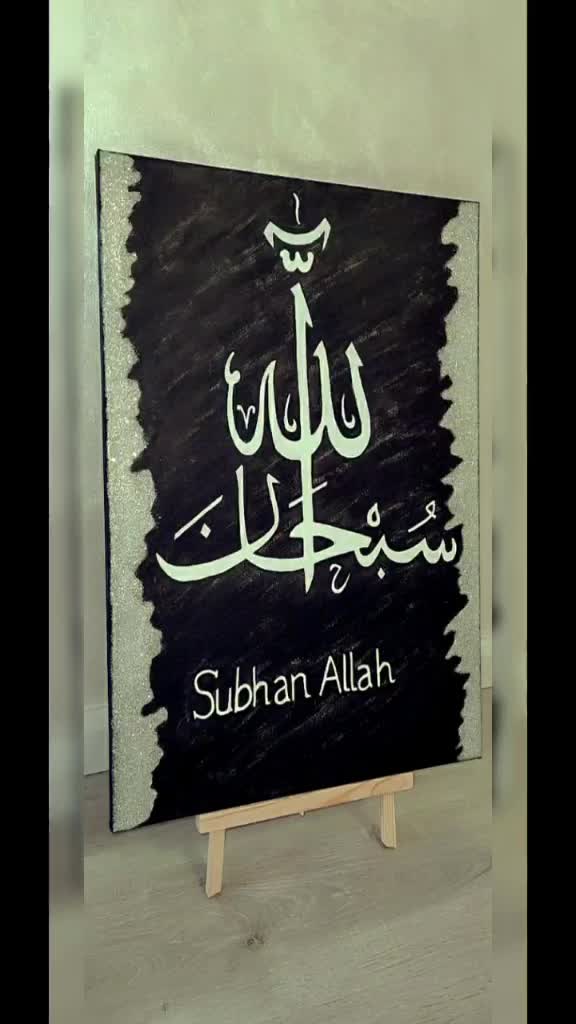 سُبْحَانَ
اللّٰه
Subhan Allah